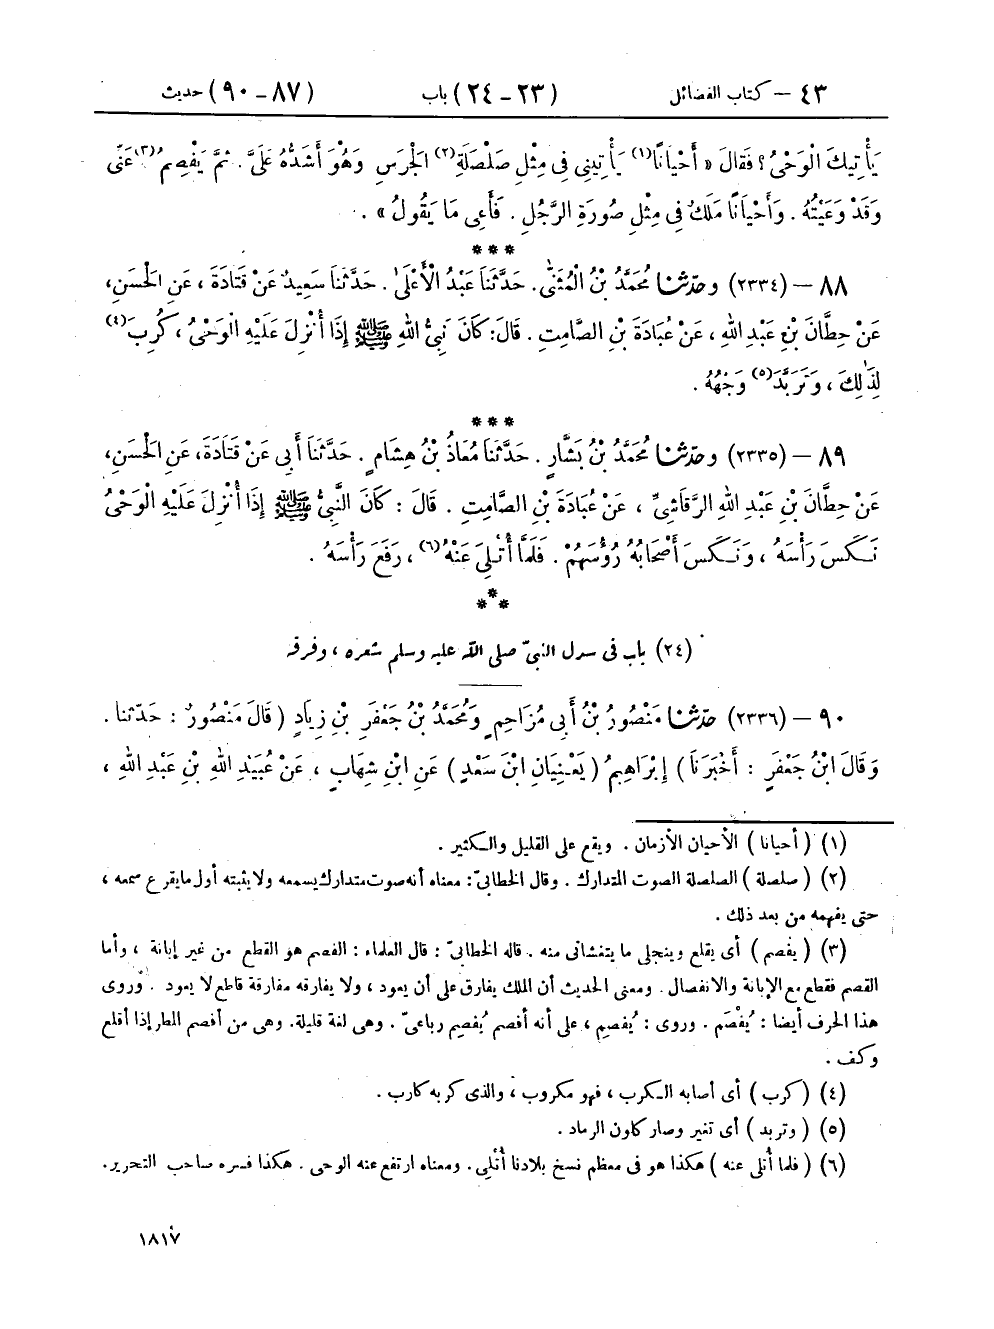 ٤٣ – كتاب الفضائل (٢٣ – ٢٤) باب (٨٧ – ٩٠) حديث
يَأْتِيكَ الْوَحْىُ؟ فَقَالَ « أَحْيَانًا(١) يَأْتِينِى فِى مِثْلِ صَلْصَلَةِ(٢) الْجَرَسِ وَهُوَ أَشَدُّهُ عَلَىَّ . ثُمَّ يَفْصِمُ(٣) عَنِّى
وَقَدْ وَعَيْتُهُ . وَأَحْيَانًا مَلَكٌ فِى مِثْلِ صُورَةِ الرَّجُلِ . فَأَعِى مَا يَقُولُ » .
***
٨٨ – (٢٣٣٤) وحَدَّثَنَا مُحَمَّدُ بْنُ الْمُثَنَّى. حَدَّثَنَا عَبْدُ الْأَعْلَىٰ . حَدَّثَنَا سَعِيدٌ عَنْ قَتَادَةَ ، عَنِ الْحَسَنِ،
عَنْ حِطَّانَ بْنِ عَبْدِ اللهِ ، عَنْ عُبَادَةَ بْنِ الصَّامِتِ . قَالَ: كَانَ نَبِىُّ اللهِ ﷺ إِذَا أُنْزِلَ عَلَيْهِ الْوَحْىُ ، كُرِبَ(٤)
لِذَٰلِكَ ، وَتَرَبَّدَ(٥) وَجْهُهُ .
***
٨٩ – (٢٣٣٥) وحَدَّثَنَا مُحَمَّدُ بْنُ بَشَّارٍ . حَدَّثَنَا مُعَاذُ بْنُ هِشَامٍ . حَدَّثَنَا أَبِى عَنْ قَتَادَةَ، عَنِ الْحَسَنِ،
عَنْ حِطَّانَ بْنِ عَبْدِ اللهِ الرَّقَاشِىِّ ، عَنْ عُبَادَةَ بْنِ الصَّامِتِ . قَالَ : كَانَ النَّبِىُّ ﷺ إِذَا أُنْزِلَ عَلَيْهِ الْوَحْىُ
نَكَسَ رَأْسَهُ ، وَنَكَسَ أَصْحَابُهُ رُؤُسَهُمْ . فَلَمَّا أُتْلِىَ عَنْهُ(٦) ، رَفَعَ رَأْسَهُ .
***
(٢٤) باب فى سدل النبىّ صلى الله عليه وسلم شعره ، وفرقه
٩٠ – (٢٣٣٦) حَدَّثَنَا مَنْصُورُ بْنُ أَبِى مُزَاحِمٍ وَمُحَمَّدُ بْنُ جَعْفَرِ بْنِ زِيَادٍ ( قَالَ مَنْصُورٌ : حَدَّثَنَا .
وَقَالَ ابْنُ جَعْفَرٍ : أَخْبَرَنَا ) إِبْرَاهِيمُ ( يَعْنِيَانِ ابْنَ سَعْدٍ ) عَنِ ابْنِ شِهَابٍ ، عَنْ عُبَيْدِ اللهِ بْنِ عَبْدِ اللهِ ،
(١) ( أحيانا ) الأحيان الأزمان . ويقع على القليل والكثير .
(٢) ( صلصلة ) الصلصلة الصوت المتدارك . وقال الخطابىّ : معناه أنه صوت متدارك يسمعه ولا يثبته أول ما يقرع سمعه ،
حتى يفهمه من بعد ذلك .
(٣) ( يفصم ) أى يقلع وينجلى ما يتغشانى منه . قاله الخطابىّ : قال العلماء : الفصم هو القطع من غير إبانة ، وأما
القصم فقطع مع الإبانة والانفصال . ومعنى الحديث أن الملك يفارق على أن يعود ، ولا يفارقه مفارقة قاطع لا يعود . وروى
هذا الحرف أيضا : يُفْصَم . وروى : يُفصِم ، على أنه أفصم يُفصِم رباعىّ . وهى لغة قليلة. وهى من أفصم المطر إذا أقلع
وكف .
(٤) ( كرب ) أى أصابه الكرب ، فهو مكروب ، والذى كربه كارب .
(٥) ( وتربد ) أى تغير وصار كلون الرماد .
(٦) ( فلما أتلى عنه ) هكذا هو فى معظم نسخ بلادنا أُتْلِى. ومعناه ارتفع عنه الوحى . هكذا فسره صاحب التحرير.
١٨١٧